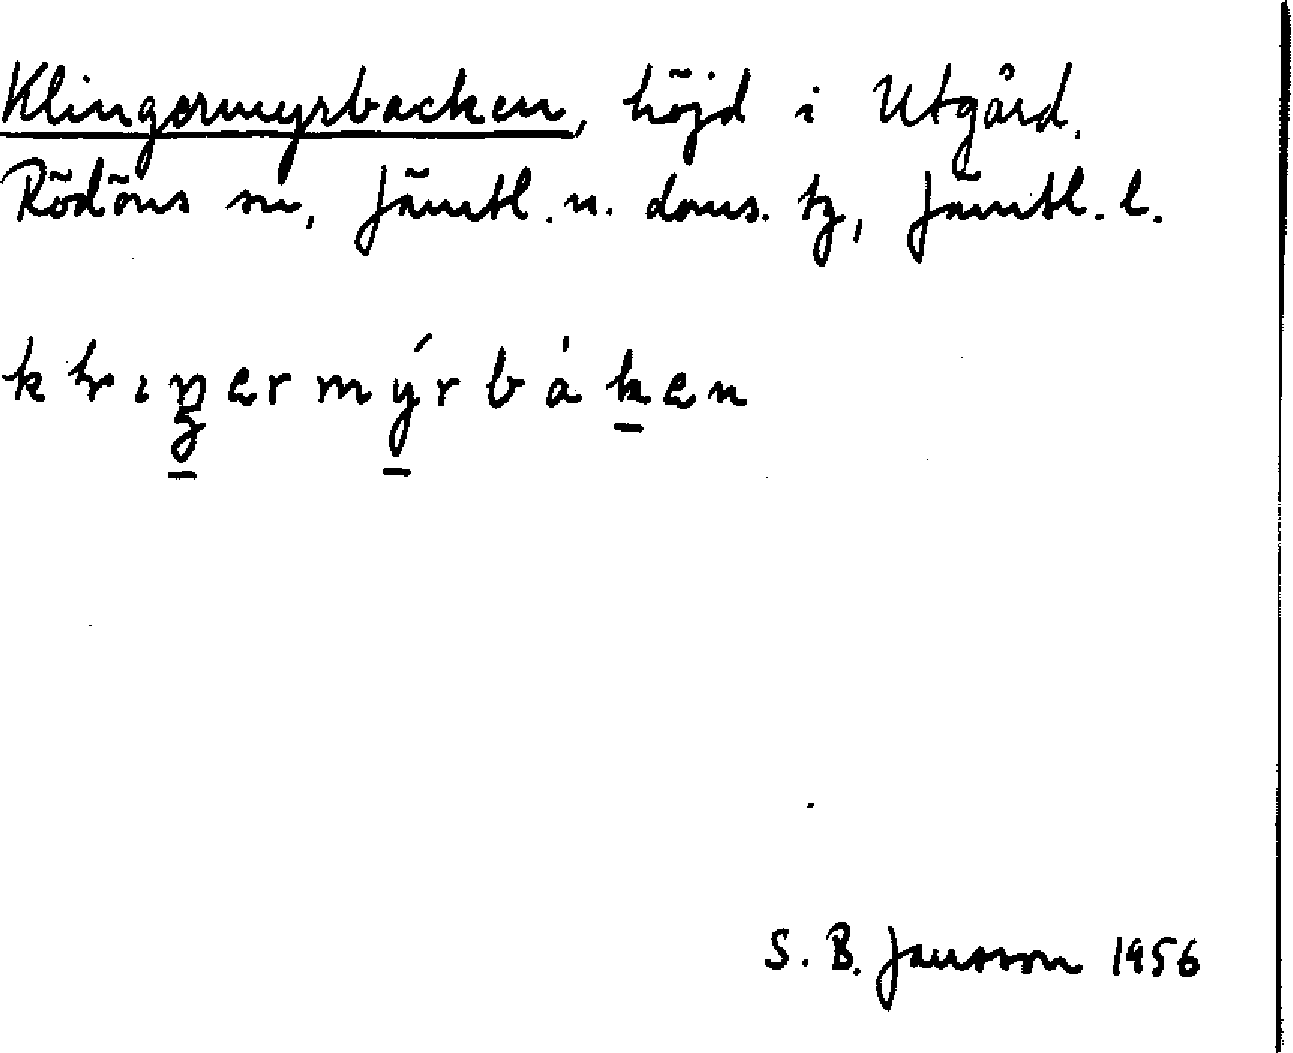 Klingermyrbacken, höjd i Utgård.
Rödöns sn, Jämtl. n. doms. tg, Jämtl. l.
S. B. Jansson 1956